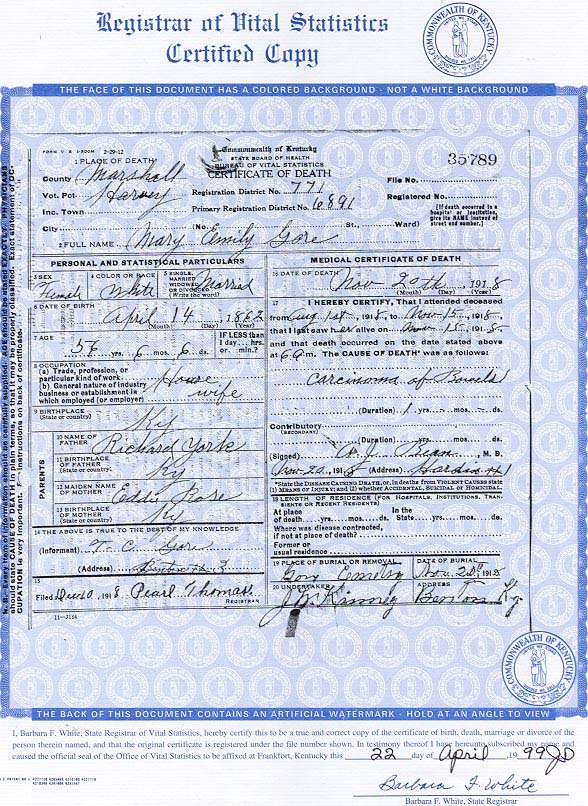 Registrar of Vital Statistics
Certified Copy
COMMONWEALTH OF KENTUCKY
THE FACE OF THIS DOCUMENT HAS A COLORED BACKGROUND - NOT A WHITE BACKGROUND
FORM V. S. 2-29-12
Commonwealth of Kentucky
STATE BOARD OF HEALTH
BUREAU OF VITAL STATISTICS
CERTIFICATE OF DEATH
35789
1 PLACE OF DEATH
County Marshall
Vot. Pct Harvey
Inc. Town
City (No. St., Ward)
Registration District No. 771
Primary Registration District No. 6891
File No.
Registered No.
[If death occurred in a hospital or institution, give its NAME instead of street and number.]
2 FULL NAME Mary Emily Gore
PERSONAL AND STATISTICAL PARTICULARS
3 SEX Female
4 COLOR OR RACE White
5 SINGLE, MARRIED WIDOWED OR DIVORCED (Write the word) Married
6 DATE OF BIRTH April 14, 1862
(Month) (Day) (Year)
7 AGE 56 yrs. 6 mos. 6 ds.
IF LESS than 1 day, hrs. or min.?
8 OCCUPATION
(a) Trade, profession, or particular kind of work House
(b) General nature of industry business or establishment in which employed (or employer) wife
9 BIRTHPLACE (State or country) Ky
PARENTS
10 NAME OF FATHER Richard York
11 BIRTHPLACE OF FATHER (State or country) Ky
12 MAIDEN NAME OF MOTHER
13 BIRTHPLACE OF MOTHER (State or country) Ky
14 THE ABOVE IS TRUE TO THE BEST OF MY KNOWLEDGE
(Informant) T. C. Gore
(Address) Benton
15
Filed 20, 1918 Pearl Thomas
REGISTRAR
11-3184
MEDICAL CERTIFICATE OF DEATH
16 DATE OF DEATH Nov 20th, 1918
(Month) (Day) (Year)
17 I HEREBY CERTIFY, That I attended deceased
from Aug 1st, 1918 to Nov 15, 1918
that I last saw her alive on Nov 15, 1918
and that death occurred on the date stated above
at 6 a m. The CAUSE OF DEATH* was as follows:
Carcinoma of Bowels
(Duration) 1 yrs. mos. ds.
Contributory
(SECONDARY)
(Duration) yrs. mos. ds.
(Signed) , M. D.
Nov 20, 1918 (Address) Hardin
*State the DISEASE CAUSING DEATH, or, in deaths from VIOLENT CAUSES state (1) MEANS OF INJURY; and (2) whether ACCIDENTAL, SUICIDAL or HOMICIDAL.
18 LENGTH OF RESIDENCE (FOR HOSPITALS, INSTITUTIONS, TRANSIENTS OR RECENT RESIDENTS)
At place of death yrs. mos. ds. In the State yrs. mos. ds.
Where was disease contracted,
if not at place of death?
Former or
usual residence
19 PLACE OF BURIAL OR REMOVAL
DATE OF BURIAL
Nov 20, 1918
20 UNDERTAKER
ADDRESS
Benton Ky
N. B.—Every item of information should be carefully supplied. AGE should be stated EXACTLY. PHYSICIANS should state CAUSE OF DEATH in plain terms, so that it may be properly classified. Exact statement of OCCUPATION is very important. Instructions on back of certificate.
COMMONWEALTH OF KENTUCKY
THE BACK OF THIS DOCUMENT CONTAINS AN ARTIFICIAL WATERMARK - HOLD AT AN ANGLE TO VIEW
I, Barbara F. White, State Registrar of Vital Statistics, hereby certify this to be a true and correct copy of the certificate of birth, death, marriage or divorce of the
person therein named, and that the original certificate is registered under the file number shown. In testimony thereof I have hereunto subscribed my name and
caused the official seal of the Office of Vital Statistics to be affixed at Frankfort, Kentucky this 22 day of April, 19 99 JD
Barbara F. White
Barbara F. White, State Registrar